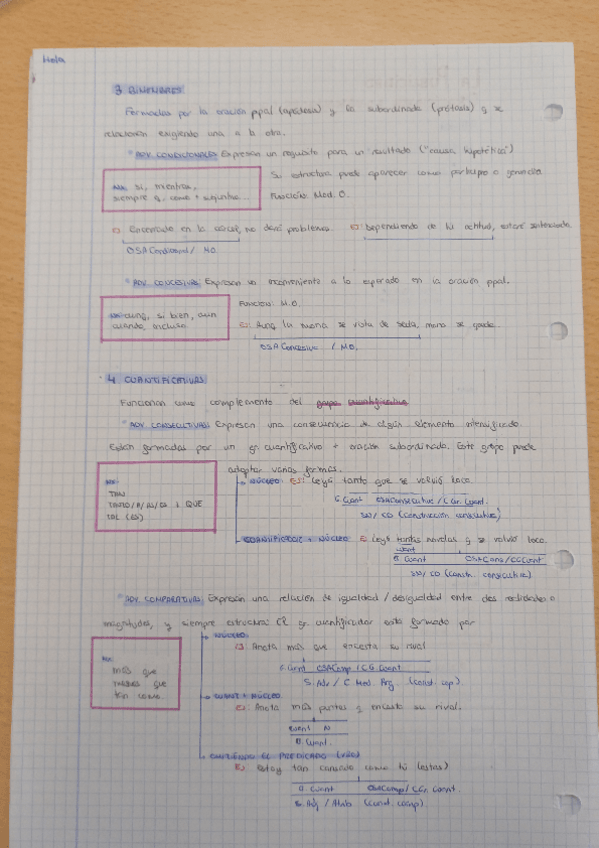 Hola
3. BIMEMBRES:
Formadas por la oración ppal (apódosis) y la subordinada (prótasis) y se
relacionan exigiendo una a la otra.
* ADV. CONDICIONALES: Expresan un requisito para un resultado ("causa hipotética")
Su estructura puede aparecer como participio o gerundio.
NX: si, mientras,
siempre q, como + subjuntivo...
Función: Mod. O.
Ej: Encerrado en la cárcel, no dará problemas. Ej: Dependiendo de tu actitud, estaré
OSA Condicional / MO.
* ADV. CONCESIVAS: Expresan un inconveniente a lo esperado en la oración ppal.
NX: aunq, si bien, aun
cuando, incluso
Función: M.O.
Ej: Aunq la mona se vista de seda, mona se queda.
OSA Concesiva / MO.
4. CUANTIFICATIVAS:
Funcionan como complemento del grupo cuantificativo
* ADV. CONSECUTIVAS: Expresan una consecuencia de algún elemento intensificado.
Están formadas por un gr. cuantificativo + oración subordinada. Este grupo puede
adoptar varias formas.
NX:
TAN
TANTO/A/OS/AS + QUE
TAL (ES)
NÚCLEO: Ej: Leyó tanto que se volvió loco.
G. Cuant OSAConsecutiva / C. Gr. Cuant.
SN/ CD (Construcción consecutiva)
CUANTIFICADOR + NÚCLEO: Ej: Leyó tantas novelas q se volvió loco.
Cuant
G. Cuant OSACons/CGCuant
SN/ CD (Constr. consecutiva)
* ADV. COMPARATIVAS: Expresan una relación de igualdad / desigualdad entre dos realidades o
magnitudes, y siempre estructura CR gr. cuantificador está formado por
NX:
más que
menos que
tan como.
NÚCLEO:
Ej: Anota más que encesta su rival
G. Cuant OSAComp / CG. Cuant
S. Adv / C. Mod. (Const. cop)
CUANT + NÚCLEO
Ej: Anota más puntos q encesta su rival.
Cuant N
G. Cuant.
OMITIENDO EL PREDICADO (verbo)
Ej: Estoy tan cansado como tú (estás)
G. Cuant OSAComp/ CGr. Cuant.
S. Adj / Atrib (Const. comp).